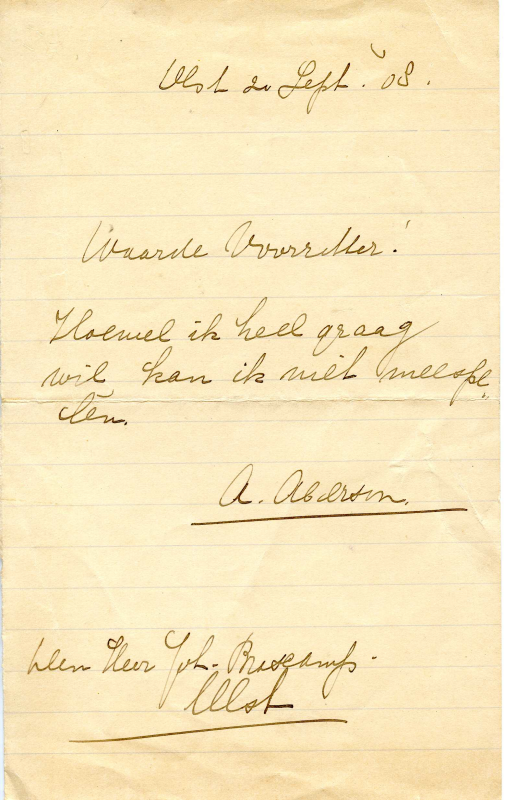 Olst 20 Sept. '03.
Waarde Voorzitter!
Hoewel ik heel graag
wil kan ik niet meespe„
len.
A. Aberson.
Den Heer Joh. Brascamp.
Olst